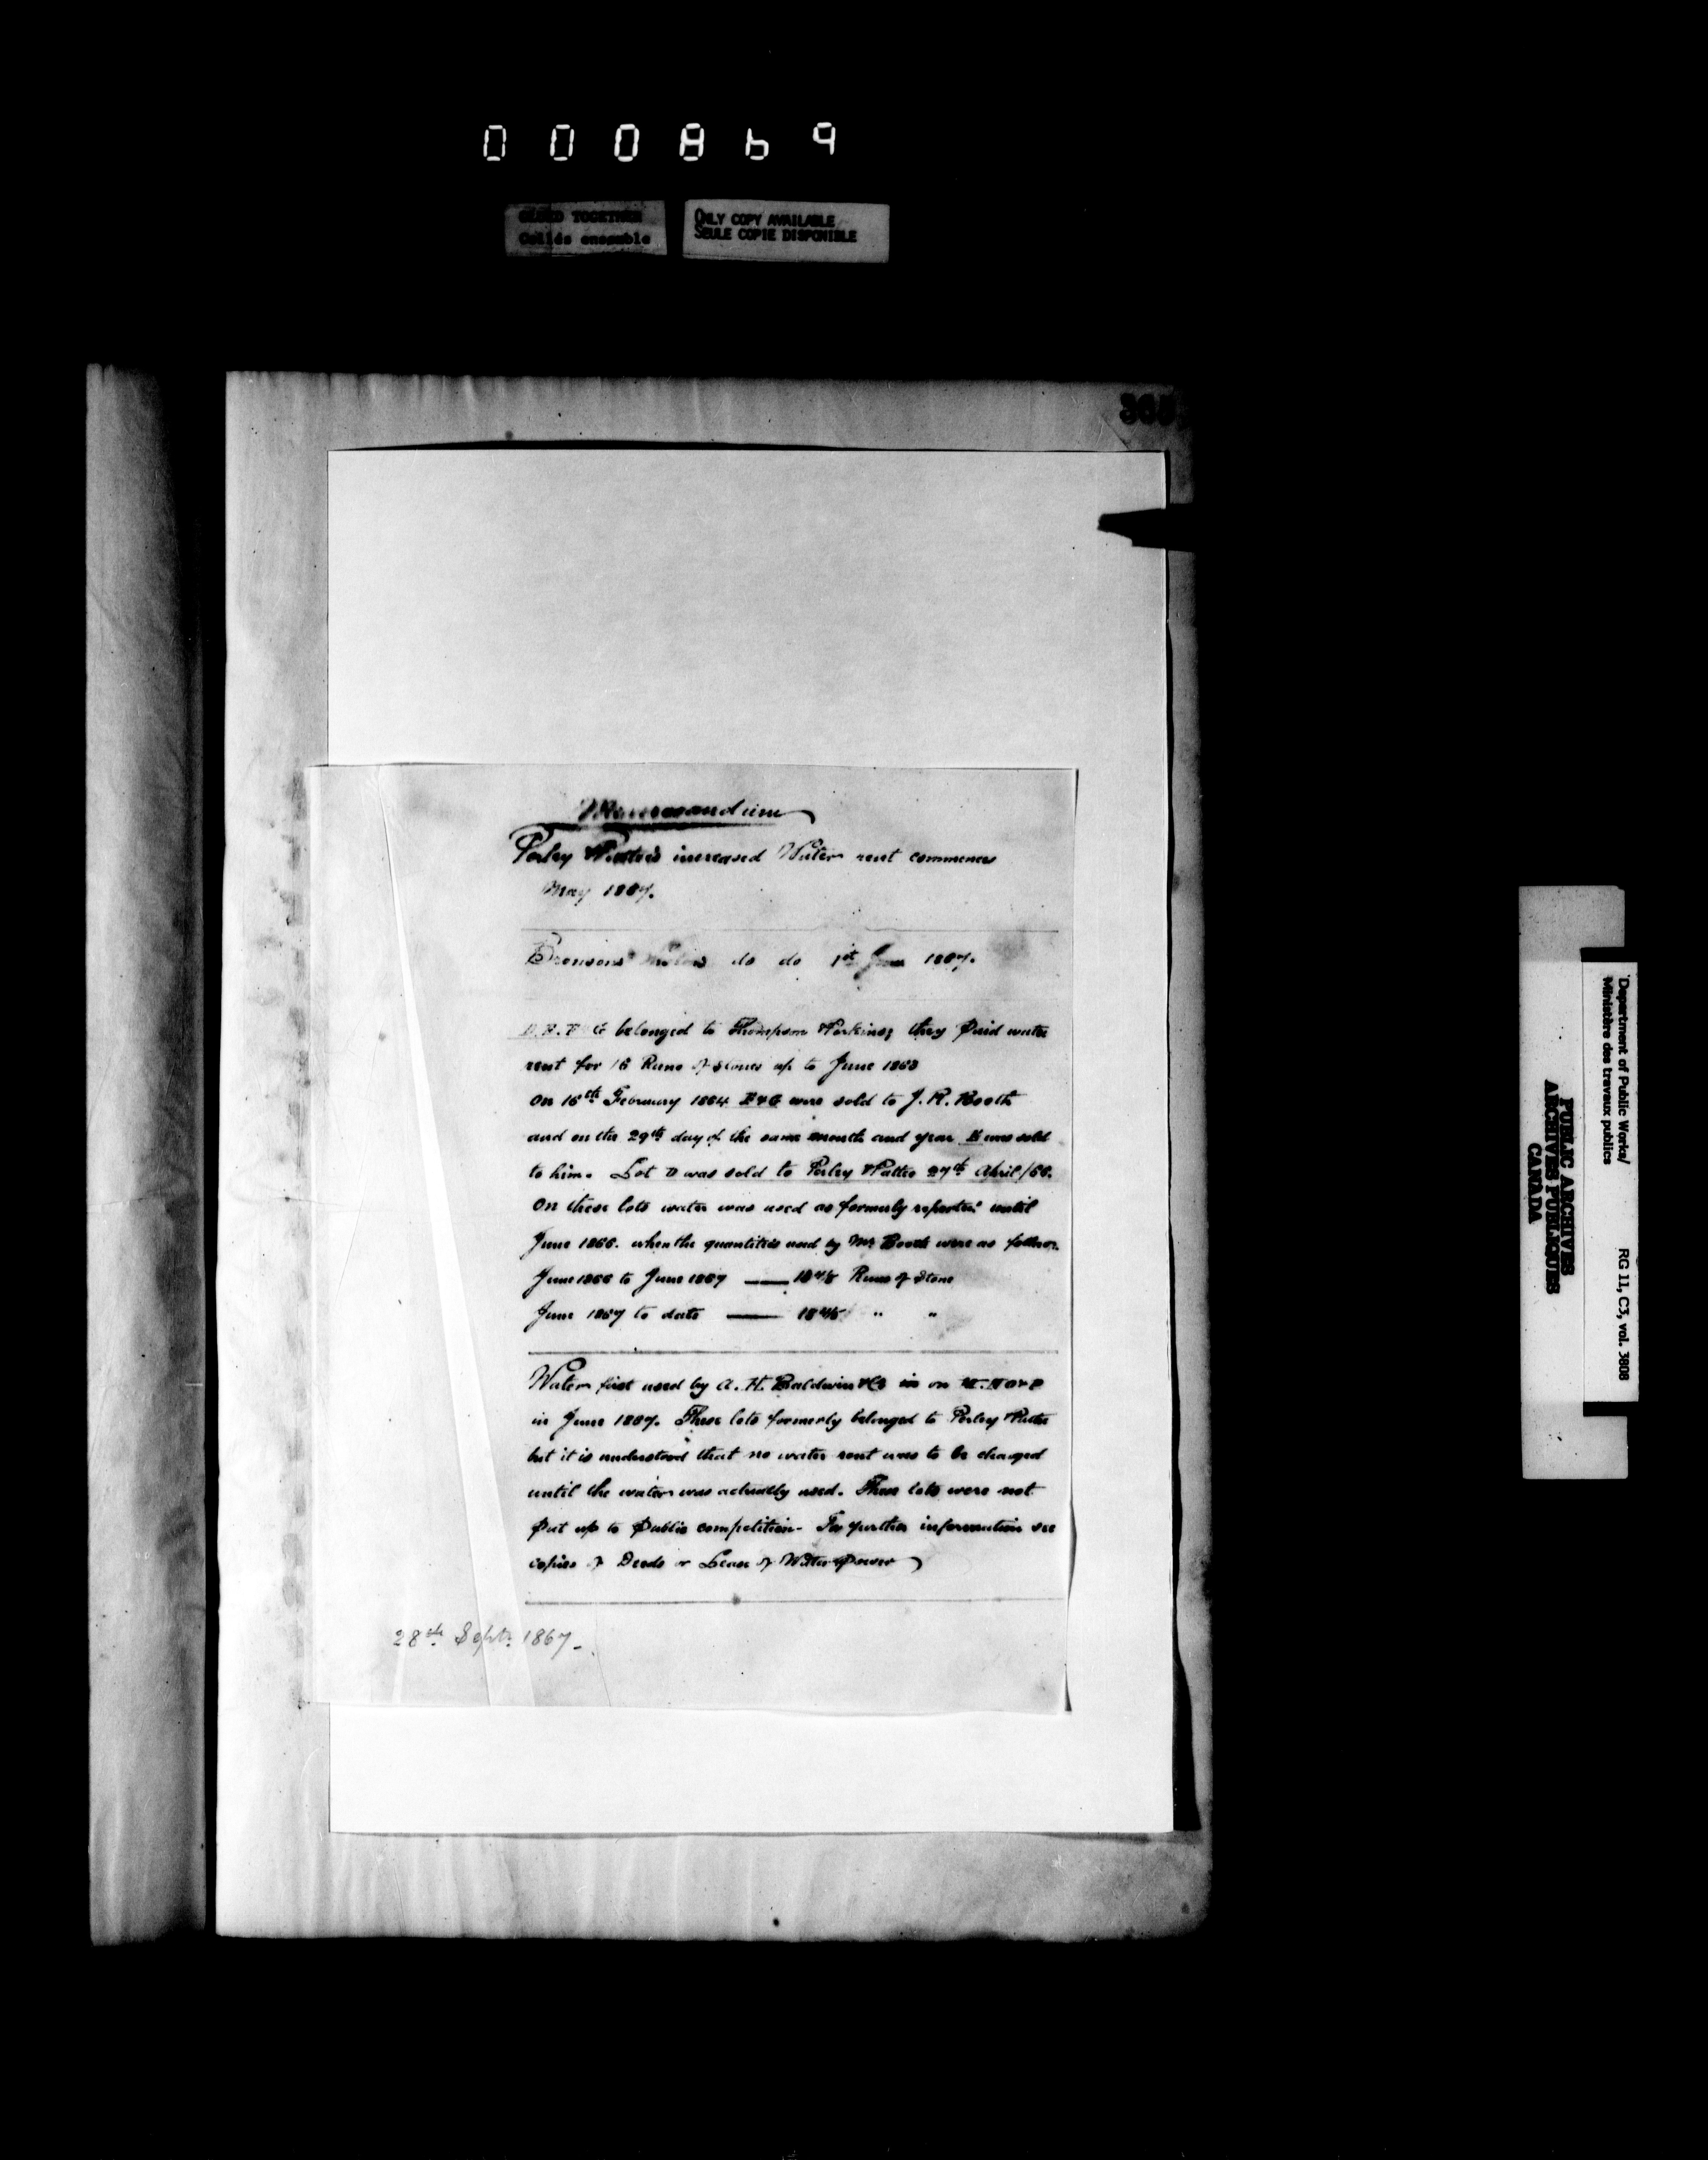 000869
GLUED TOGETHER
Collés ensemble
ONLY COPY AVAILABLE
SEULE COPIE DISPONIBLE
Memorandum
Perley & Pattee's increased Water rent commences
May 1867.
Bronsons & do do 1st June 1867.
D. E. F & G belonged to Thompson & Perkins; they paid water
rent for 16 Runs of stones up to June 1863
On 16th February 1864 F & G were sold to J. R. Booth
and on the 29th day of the same month and year E was sold
to him. Lot D was sold to Perley & Pattee 27th April/66.
On these lots water was used as formerly reported until
June 1866. when the quantities used by Mr Booth were as follows.
June 1866 to June 1867 Runs of Stone
June 1867 to date " "
Water first used by A. H. Baldwin & Co on M. N O & P
in June 1867. These lots formerly belonged to Perley & Pattee
but it is understood that no water rent was to be charged
until the water was actually used. These lots were not
put up to public competition. For further information see
copies of Deeds or Lease of Water power
28th Sept. 1867.
Department of Public Works/
Ministère des travaux publics
RG 11, C3, vol. 3808
PUBLIC ARCHIVES
ARCHIVES PUBLIQUES
CANADA